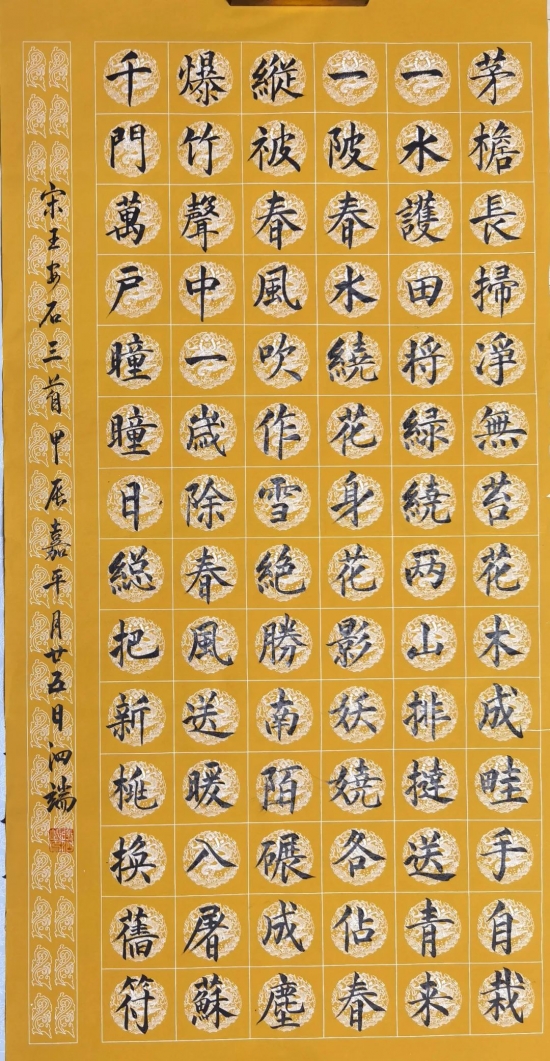 茅檐長掃淨無苔花木成畦手自栽
一水護田将緑繞两山排撻送青来
一陂春水繞花身花影妖嬈各佔春
縱被春風吹作雪絶勝南陌碾成塵
爆竹聲中一歲除春風送暖入屠蘇
千門萬戶瞳瞳日緫把新桃換舊符
宋王安石三首甲辰嘉平月廿五日泗端